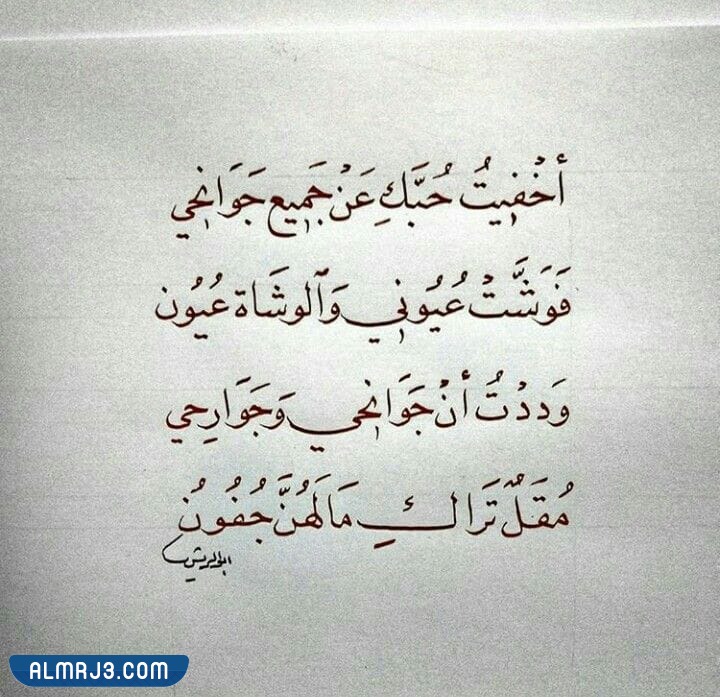 أَخْفِيتُ حُبَّكِ عَنْ جَمِيعِ جَوَانِحِي
فَوَشَّتْ عُيُونِي وَٱلوشَاة عُيُون
وَددْتُ أنْ جَوَانِحِي وَجَوَارِحِي
مُقَلٌ تَرَاكِ مَا لَهُنَّ جُفُونُ
ALMRJ3.COM